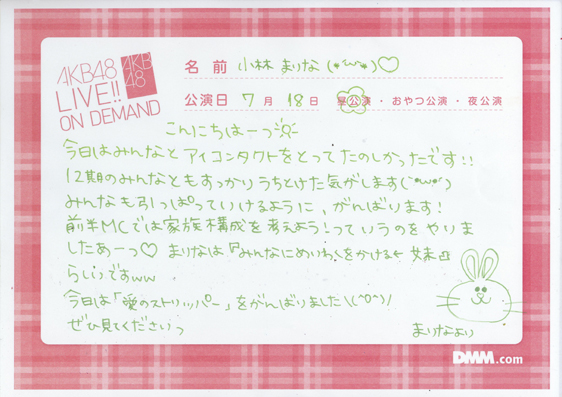 AKB48
LIVE!!
ON DEMAND
AKB
48
名前 小林 まりな (*'ω'*)♡
公演日 7月 18日 昼公演・おやつ公演・夜公演
こんにちはーっ
今日はみんなとアイコンタクトをとってたのしかったです!!
12期のみんなともすっかりうちとけた気がします(*´ω`*)
みんなも引っぱっていけるように、がんばります!
前半MCでは家族構成を考えよう!っていうのをやりま
したあーっ♡ まりなは『みんなにめいわくをかける← 妹』
らしいですww
今日は「愛のストリッパー」をがんばりました\(^o^)/
ぜひ見てくださいっ
まりなより
DMM.com